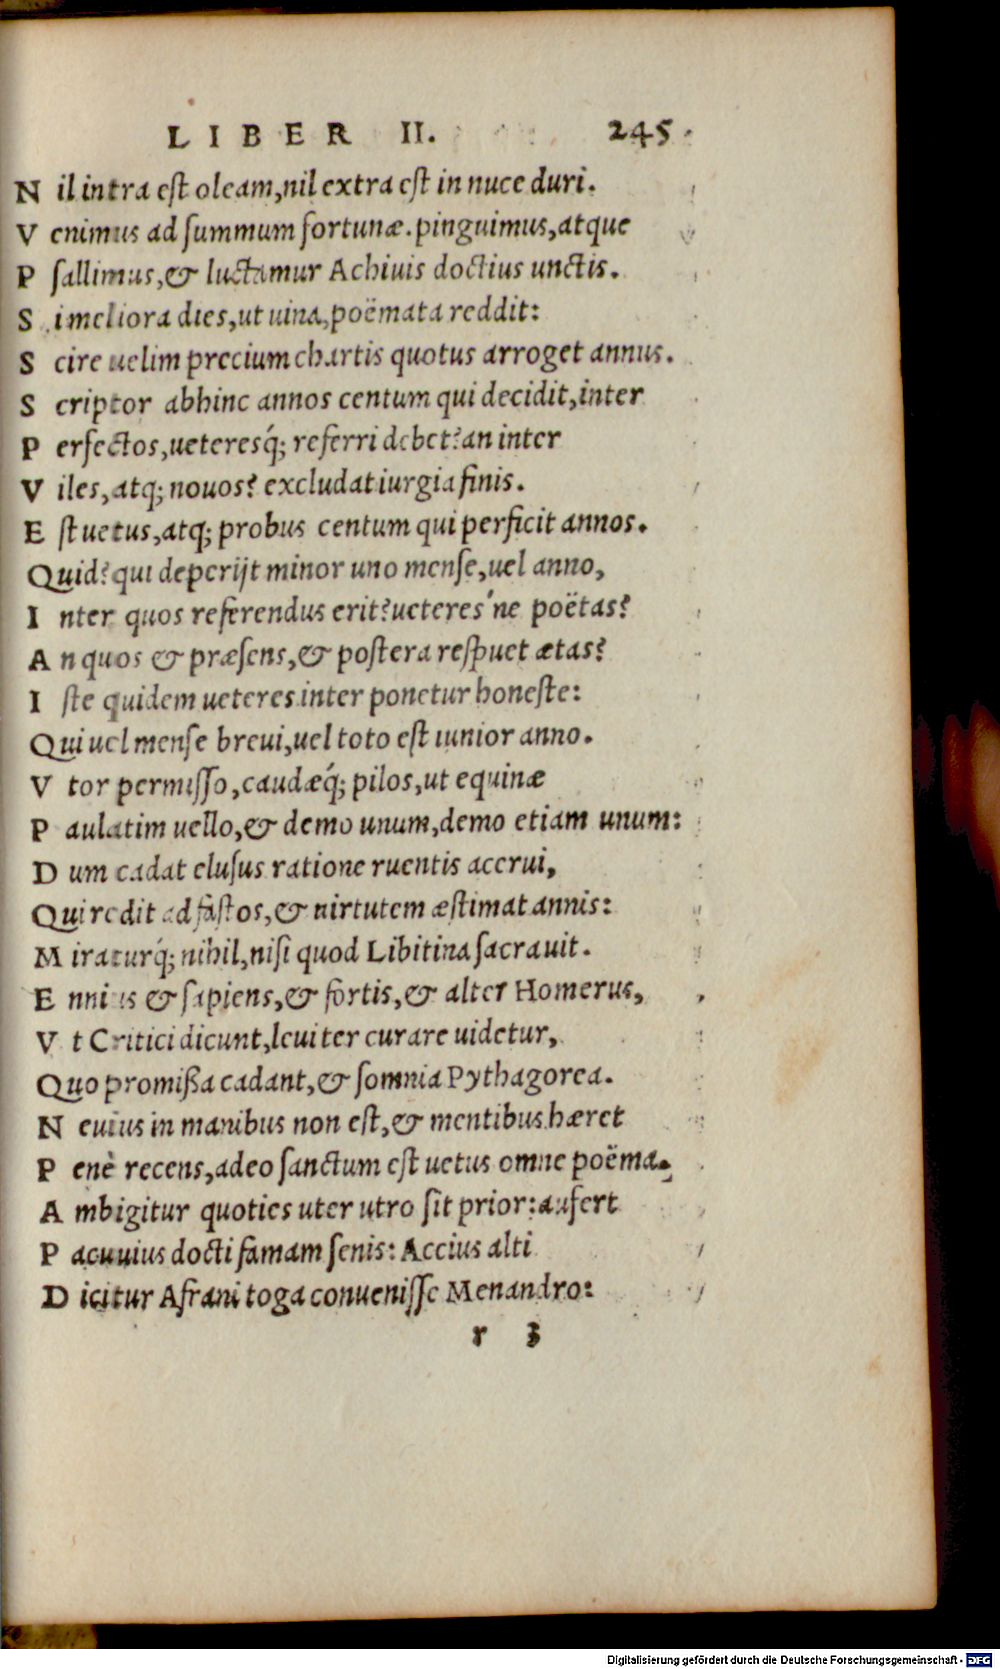 LIBER II. 245
Nil intra est oleam, nil extra est in nuce duri.
Venimus ad summum fortunæ. pinguimus, atque
Psallimus, & luctamur Achiuis doctius unctis.
Si meliora dies, ut uina, poëmata reddit:
Scire uelim precium chartis quotus arroget annus.
Scriptor abhinc annos centum qui decidit, inter
Perfectos, ueteresq́; referri debet? an inter
Viles, atq; nouos? excludat iurgia finis.
Est uetus, atq; probus centum qui perficit annos.
Quid? qui deperijt minor uno mense, uel anno,
Inter quos referendus erit? ueteres'ne poëtas?
An quos & præsens, & postera respuet ætas?
Iste quidem ueteres inter ponetur honeste:
Qui uel mense breui, uel toto est iunior anno.
Vtor permisso, caudæq́; pilos, ut equinæ
Paulatim uello, & demo unum, demo etiam unum:
Dum cadat elusus ratione ruentis acerui,
Qui redit ad fastos, & uirtutem æstimat annis:
Miraturq́; nihil, nisi quod Libitina sacrauit.
Ennius & sapiens, & fortis, & alter Homerus,
Vt Critici dicunt, leuiter curare uidetur,
Quo promißa cadant, & somnia Pythagorea.
Neuius in manibus non est, & mentibus hæret
Penè recens, adeo sanctum est uetus omne poëma.
Ambigitur quoties uter utro sit prior: aufert
Pacuuius docti famam senis: Accius alti
Dicitur Afrani toga conuenisse Menandro:
r 3
Digitalisierung gefördert durch die Deutsche Forschungsgemeinschaft - DFG